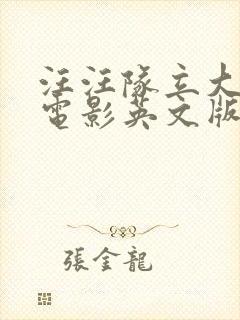 汪汪隊立大
電影英文版
張金龍